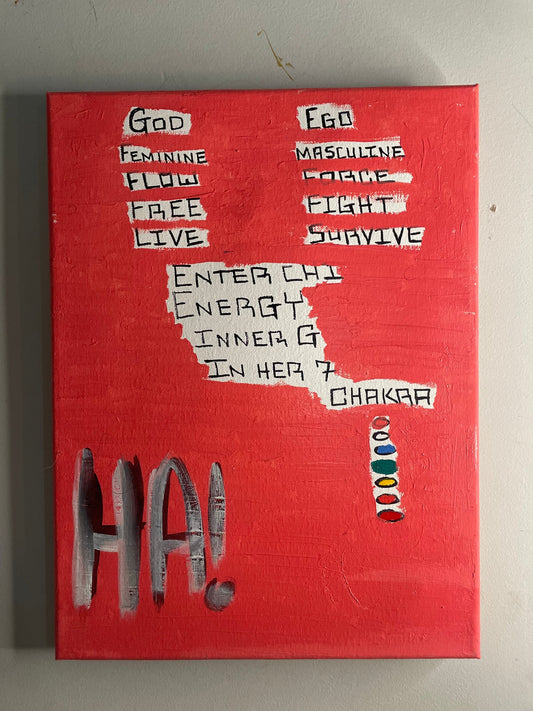 GOD EGO
FEMININE MASCULINE
FLOW FORCE
FREE FIGHT
LIVE SURVIVE
ENTER CHI
ENERGY
INNER G
IN HER 7
CHAKRA
HA!